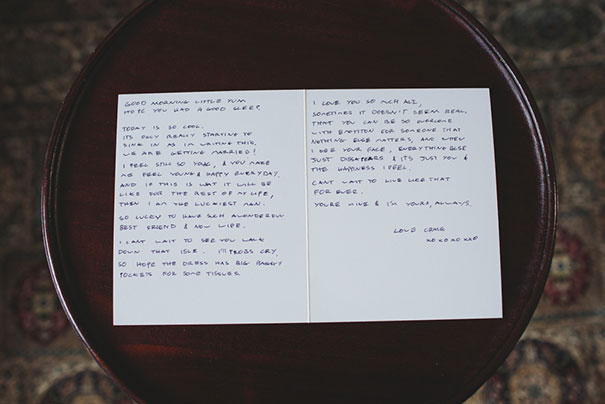 GOOD MORNING LITTLE YUM
HOPE YOU HAD A GOOD SLEEP.
TODAY IS SO COOL.
ITS ONLY REALLY STARTING TO
SINK IN AS I'M WRITING THIS,
WE ARE GETTING MARRIED!
I FEEL STILL SO YOUNG, & YOU MAKE
ME FEEL YOUNG & HAPPY EVERYDAY.
AND IF THIS IS WAT IT WILL BE
LIKE FOR THE REST OF MY LIFE,
THEN I AM THE LUCKIEST MAN.
SO LUCKY TO HAVE SUCH A WONDERFUL
BEST FRIEND & NOW WIFE.
I CANT WAIT TO SEE YOU WALK
DOWN THAT ISLE. I'LL PROBS CRY,
SO HOPE THE DRESS HAS BIG BAGGY
POCKETS FOR SOME TISSUES
I LOVE YOU SO MUCH ALI,
SOMETIMES IT DOESN'T SEEM REAL,
THAT YOU CAN BE SO OVERCOME
WITH EMOTION FOR SOMEONE THAT
NOTHING ELSE MATTERS, AND WHEN
I SEE YOUR FACE, EVERYTHING ELSE
JUST DISAPPEARS & ITS JUST YOU &
THE HAPPINESS I FEEL.
CANT WAIT TO LIVE LIKE THAT
FOR EVER.
YOURE MINE & I'M YOURS, ALWAYS.
LOVE CRAIG
XO XO XO XXO